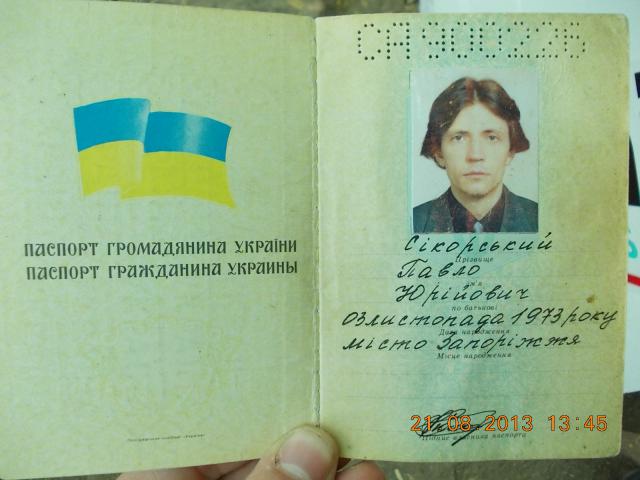 ПАСПОРТ ГРОМАДЯНИНА УКРАЇНИ
ПАСПОРТ ГРАЖДАНИНА УКРАИНЫ
СА900226
Сікорський
Прізвище
Павло
Ім'я
Юрійович
по батькові
03 листопада 1973 року
Дата народження
місто Запоріжжя
Місце народження
21.08.2013 13:45
Підпис власника паспорта